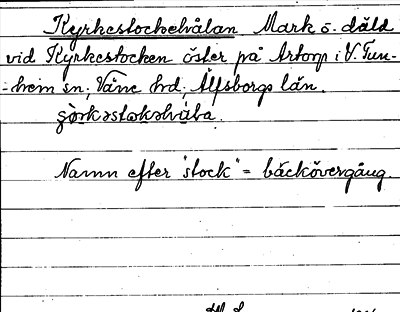 Kyrkestockehålan Mark o. däld
vid Kyrkestocken öster på Artorp i V. Tun-
hem sn, Väne hd, Älfsborgs län.
Namn efter "stock" = bäckövergång.